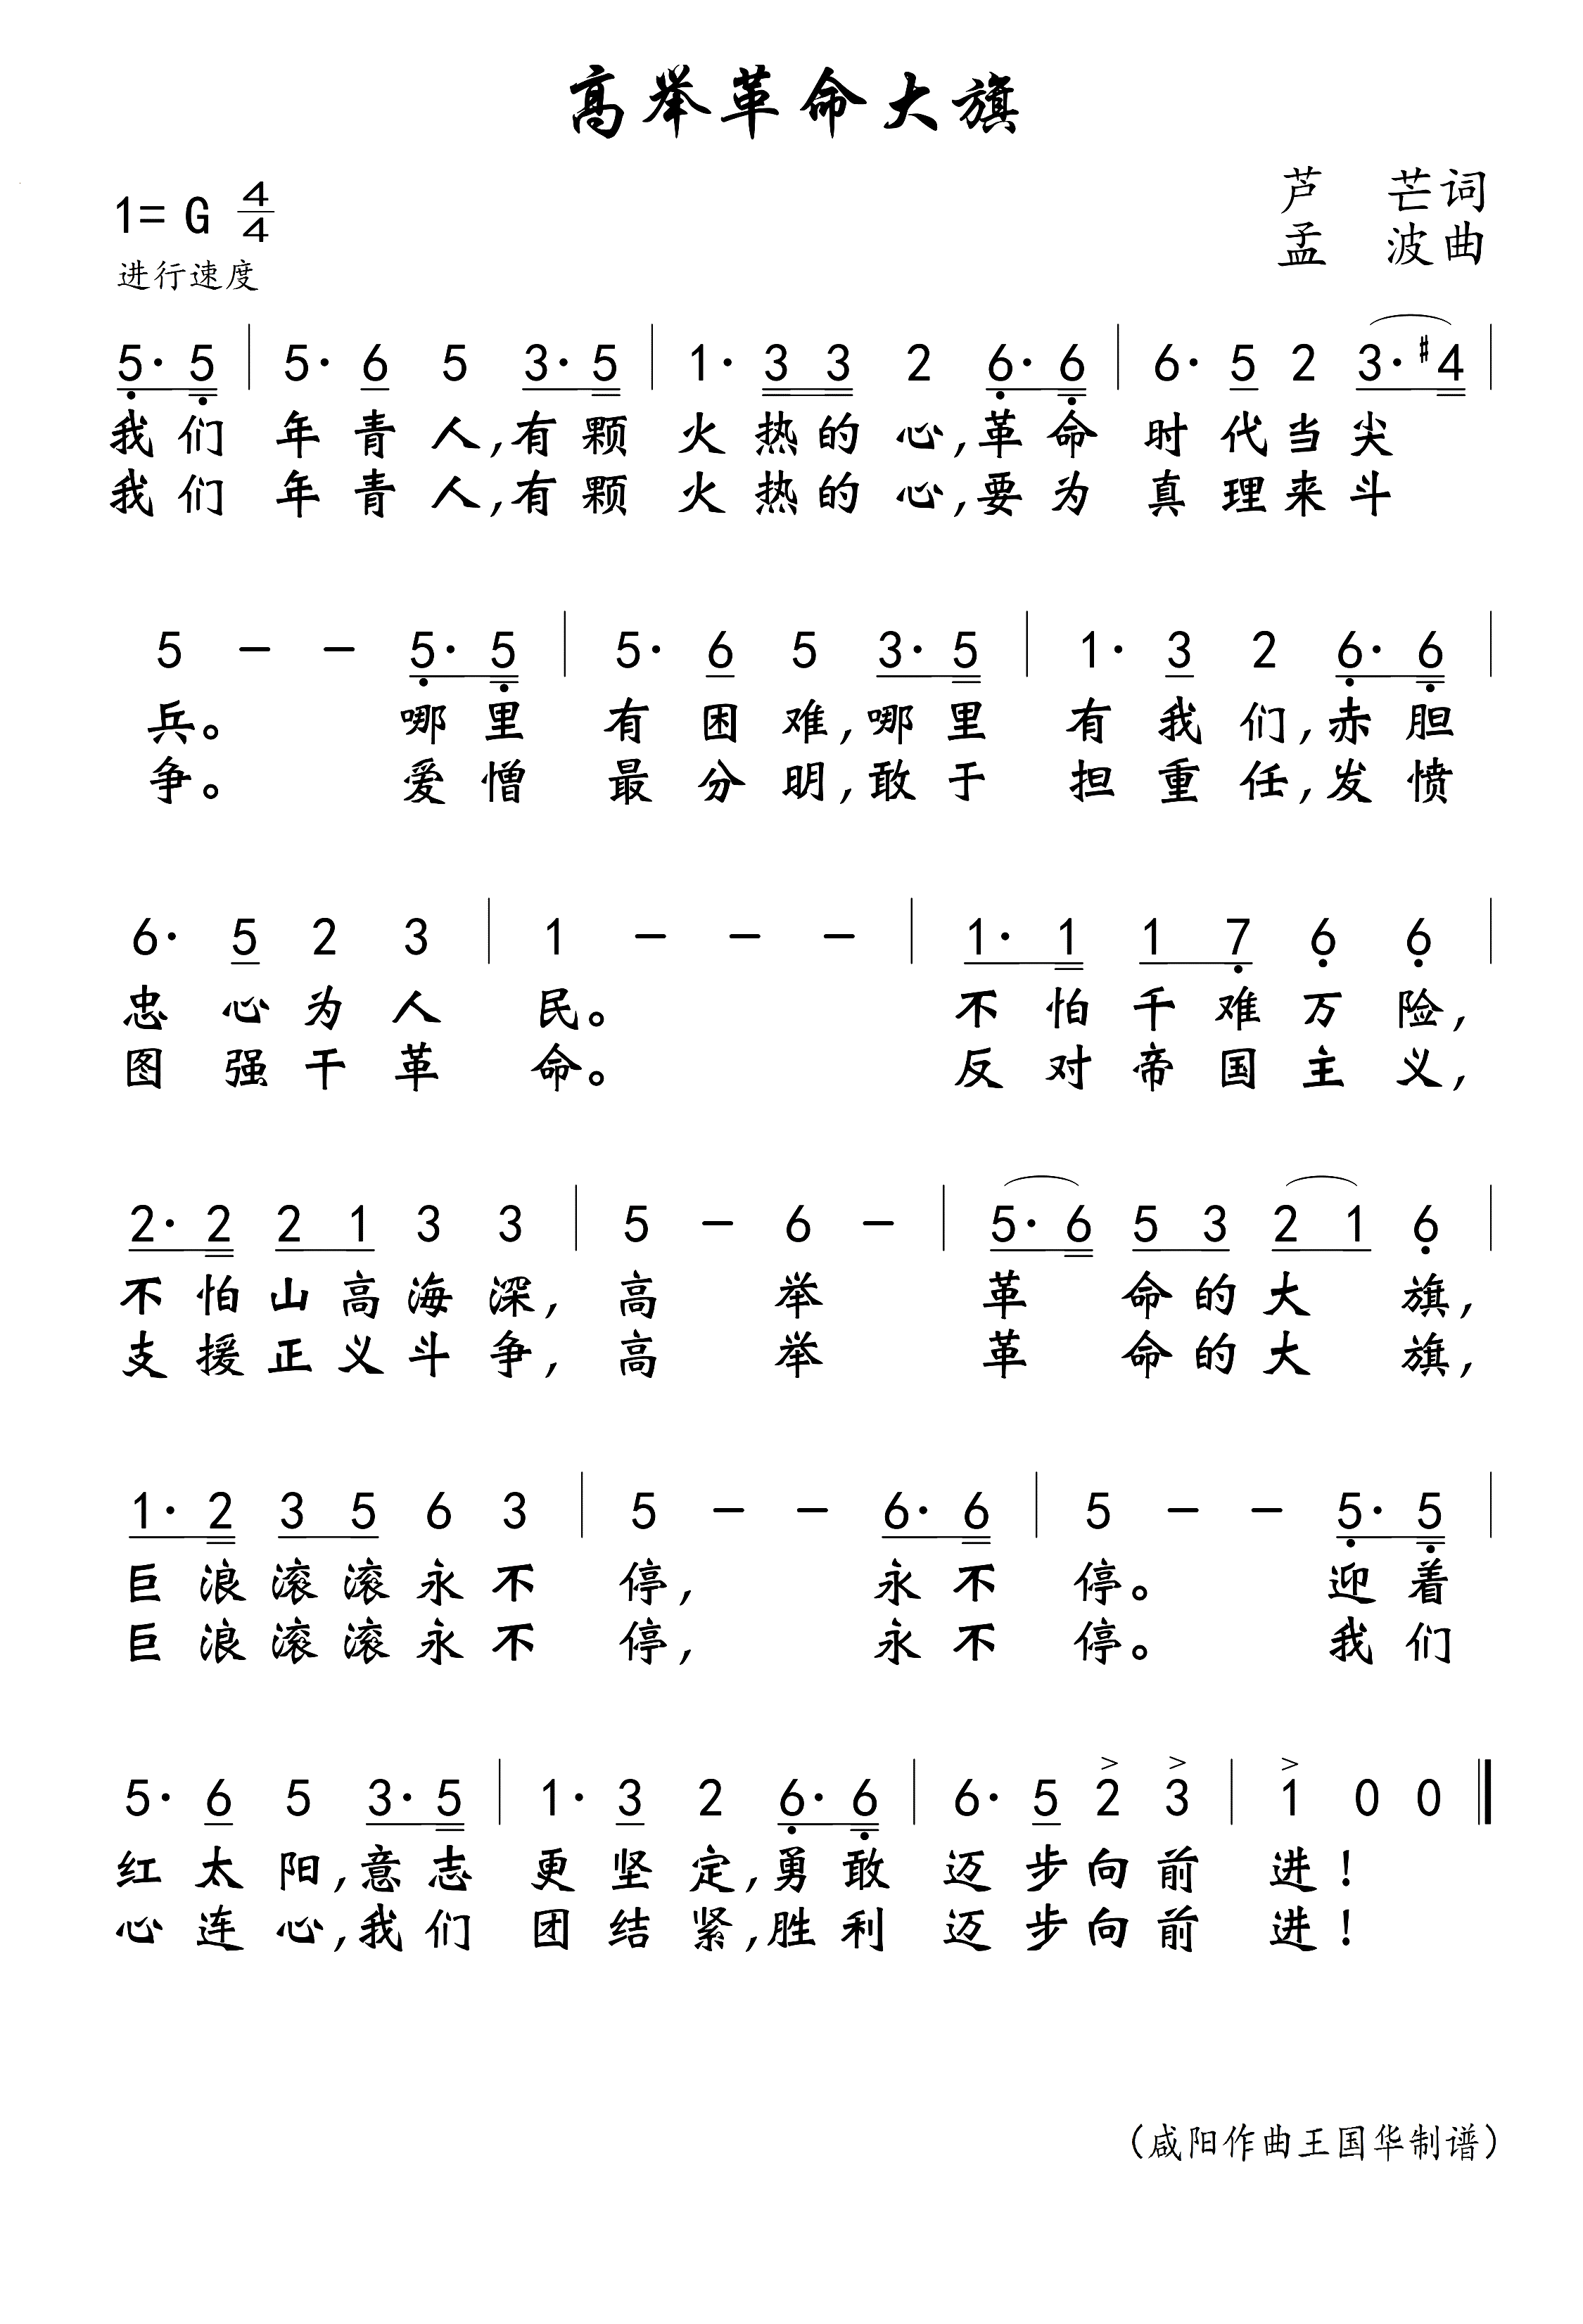 高举革命大旗
1= G 4/4
芦 芒词
孟 波曲
进行速度
5· 5 | 5· 6 5 3· 5 | 1· 3 3 2 6· 6 | 6· 5 2 3· #4 |
我们 年青人,有颗 火热的心,革命 时代当尖
我们 年青人,有颗 火热的心,要为 真理来斗
5 - - 5· 5 | 5· 6 5 3· 5 | 1· 3 2 6· 6 |
兵。 哪里 有困难,哪里 有我们,赤胆
争。 爱憎 最分明,敢于 担重任,发愤
6· 5 2 3 | 1 - - - | 1· 1 1 7 6 6 |
忠心为人 民。 不怕千难万险,
图强干革 命。 反对帝国主义,
2· 2 2 1 3 3 | 5 - 6 - | 5· 6 5 3 2 1 6 |
不怕山高海深, 高 举 革 命的大 旗,
支援正义斗争, 高 举 革 命的大 旗,
1· 2 3 5 6 3 | 5 - - 6· 6 | 5 - - 5· 5 |
巨浪滚滚永不 停, 永不 停。 迎着
巨浪滚滚永不 停, 永不 停。 我们
5· 6 5 3· 5 | 1· 3 2 6· 6 | 6· 5 2 3 | 1 0 0 ‖
红太阳,意志 更坚定,勇敢 迈步向前 进!
心连心,我们 团结紧,胜利 迈步向前 进!
(咸阳作曲王国华制谱)